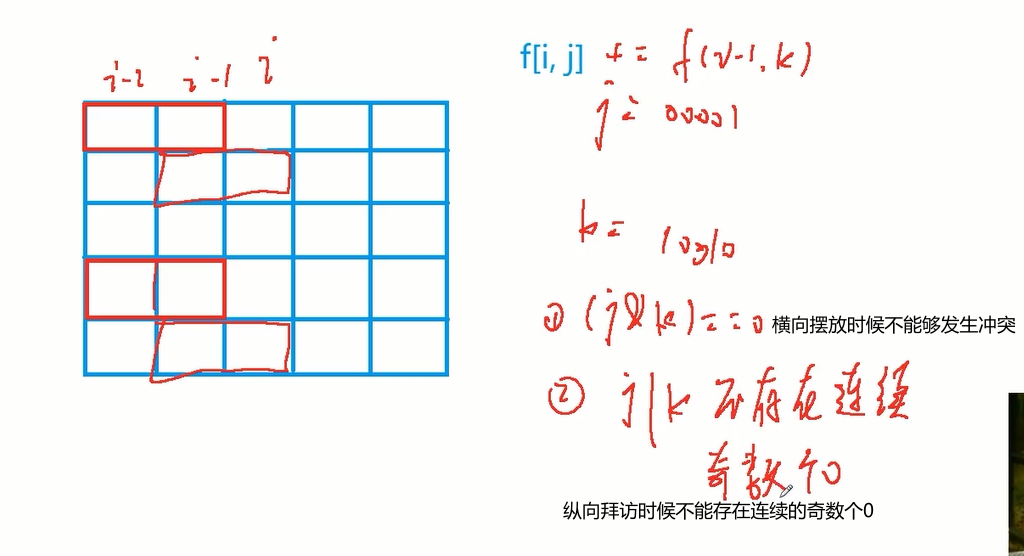 i-2 i-1 i
f[i, j] += f(i-1, k)
j = 00001
k = 10010
① (j & k) == 0 横向摆放时候不能够发生冲突
② j|k 不存在连续
奇数个0
纵向拜访时候不能存在连续的奇数个0